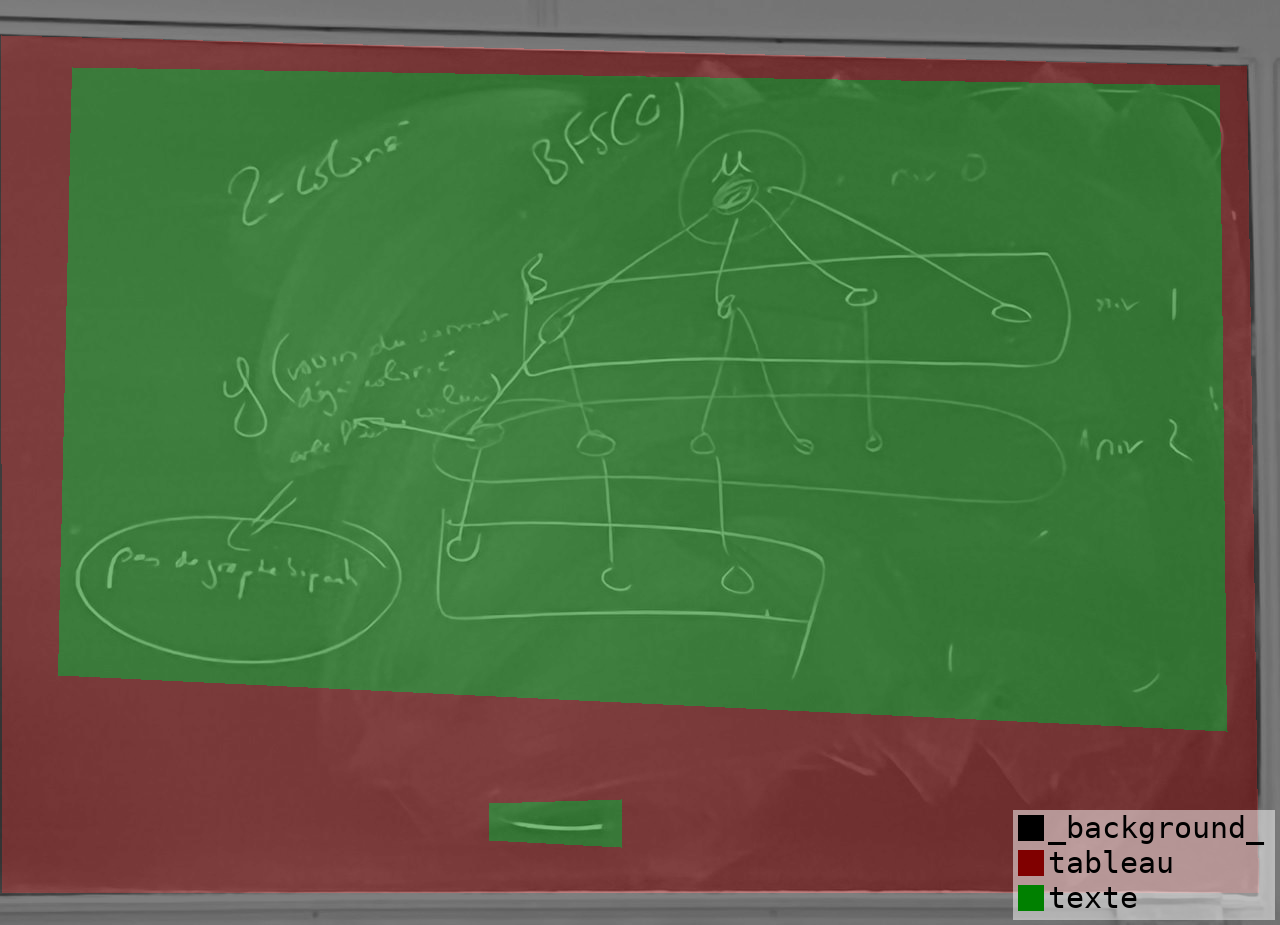 2-colorié
BFS(G)
u
niv 0
niv 1
y (voisin du sommet
déjà colorié
avec
couleur)
niv 2
pas de graphe biparti
_background_
tableau
texte